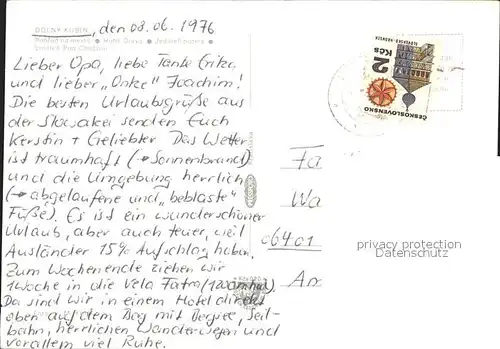 DOLNÝ KUBÍN, den 08.06.1976
Lieber Opa, liebe Tante Erika
und lieber "Onkel" Joachim!
Die besten Urlaubsgrüße aus
der Slowakei senden Euch
Kerstin + Geliebter. Das Wetter
ist traumhaft (→ Sonnenbrand)
und die Umgebung herrlich
(→ abgelaufene und "beblaste"
Füße). Es ist ein wunderschöner
Urlaub, aber auch teuer, weil
Ausländer 15% Aufschlag haben.
Zum Wochenende ziehen wir
1 Woche in die Velá Fatra
Da sind wir in einem Hotel direkt
oben auf dem Berg mit Seil-
bahn, herrlichen Wanderwegen und
vor allem viel Ruhe.
2 Kčs
ČESKOSLOVENSKO
Fa
Wa
06401
Am
privacy protection
Datenschutz